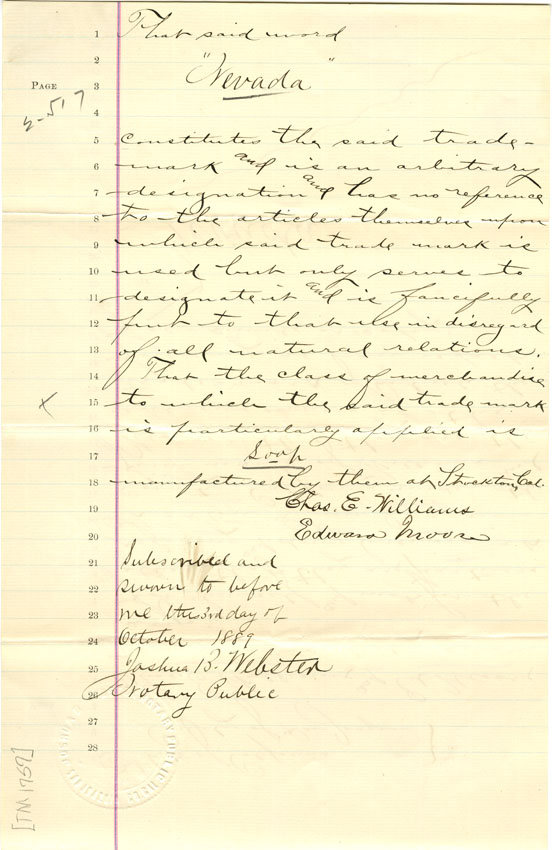 1 That said word
2
PAGE 3 "Nevada"
2-517
5 constitutes the said trade-
6 mark and is an arbitrary
7 designation and has no reference
8 to the articles themselves upon
9 which said trade mark is
10 used but only serves to
11 designate it and is fancifully
12 put to that use in disregard
13 of all natural relations.
14 That the class of merchandise
x 15 to which the said trade mark
16 is particularly applied is
17 Soap
18 manufactured by them at Stockton, Cal.
19 Chas. E. Williams
20 Edward Moore
21 Subscribed and
22 sworn to before
23 me this 3rd day of
24 October 1889
25 Joshua B. Webster
26 Notary Public
27
28
[TM 1759]